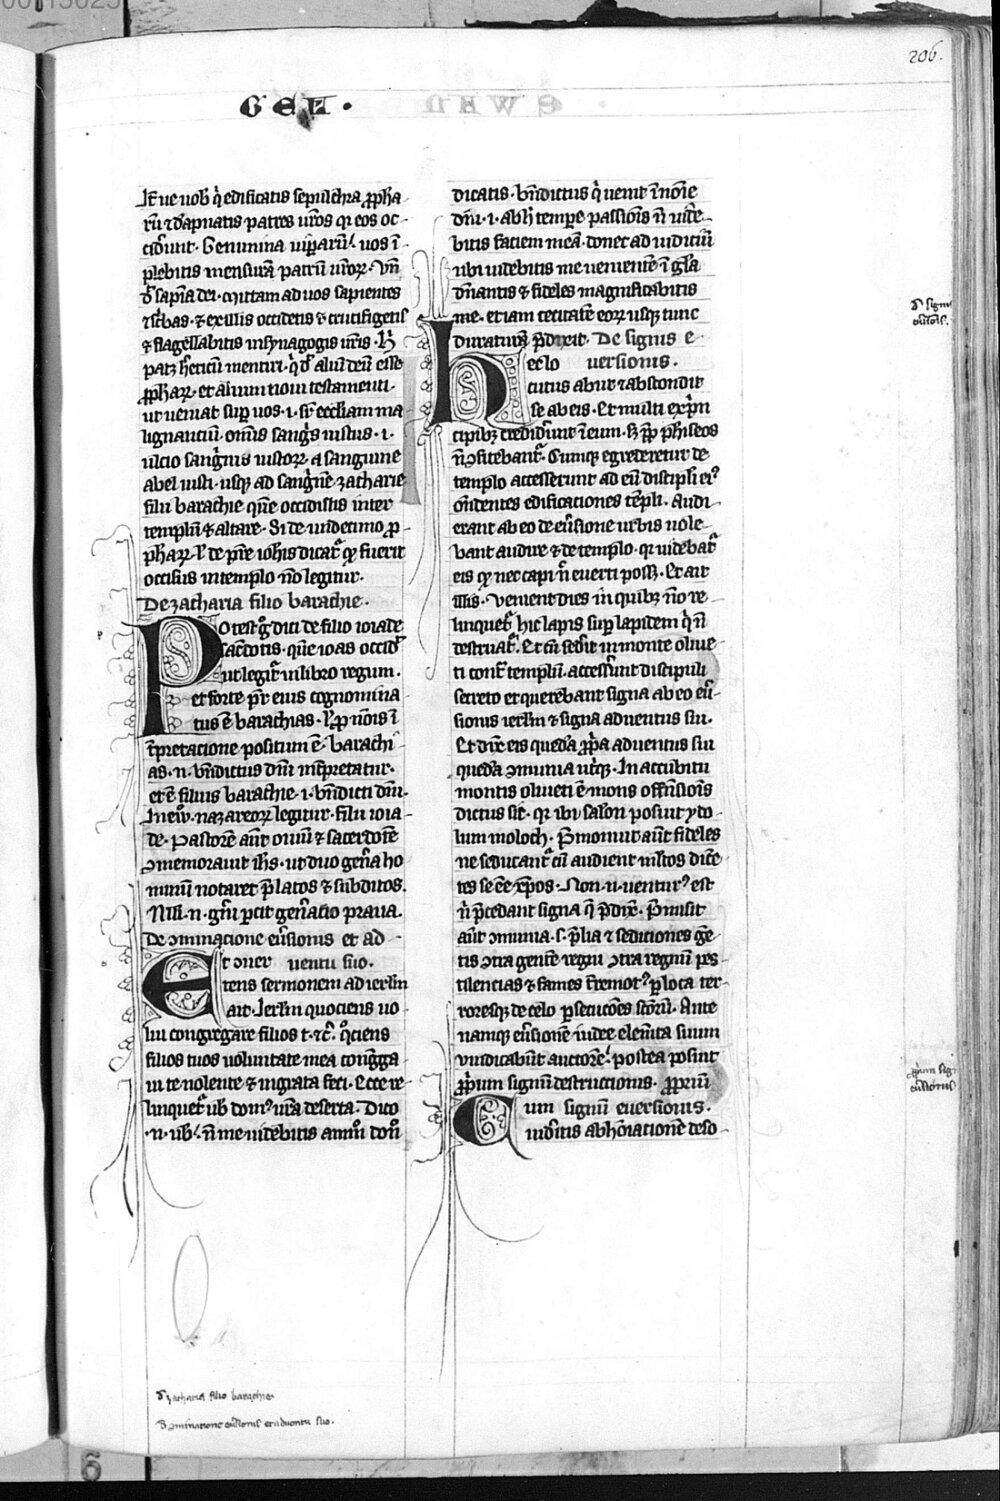 206.
GEU.
Ite ue uob̛ qi edificatis sepulchra ꝓpha
rū ⁊ dāpnatis patres ur̄os qi eos oc-
cidūnt. Genimina uiꝑarū. uos ī-
plebitis mensurā patrū ur̄oꝝ. Vn̄
d̄ sapīa dei. Mittam ad uos sapientes
⁊ sc̄bas. ⁊ ex illis occidetis ⁊ crucifigetis
⁊ flagellabitis in synagogis ur̄is.
ꝓphaꝝ. et alium noui testamenti.
ut ueniat suꝑ uos .i. sr̄ eccl̄iam ma
lignantiū. omīs sangīs iustus .i.
ulcio sangīnis iustoꝝ. a sanguine
abel iusti. usqꝫ ad sangīnē zacharie
filii barachie quē occidistis inter
templū ⁊ altare. Si de undecimo ꝓ
phaꝝ. ł de pr̄e ioh̄is dicatr̄ qꝫ fuerit
occisus in templo nō legitur.
De zacharia filio barachie.
Potest g̊ dici de filio ioiade
sac̄dotis. quē ioas occid̄
ut legit̄ in libro regum.
et forte pr̄ eius cognomina
tus ē barachias. ł ꝓ nōis ī
t̄pretacione positum ē. barachi
as .n. bn̄dictus dn̄i int̄pretatur.
et ē filius barachie .i. bn̄dicti dn̄i.
In eu̅o. nazareoꝝ legitur. filii ioia
de. Pastorē aūt ouiū ⁊ sacerdotē
ꝯmemorauit ih̄s. ut duo gen̄a ho
minū notaret p̄latos ⁊ subditos.
De ꝯminacione eu̅sionis et ad-
Et ꝯuer uentu suo.
tens sermonem ad ierl̄m
ait. Ierl̄m quociens uo
lui congregare filios t. ⁊c̄. qͦciens
filios tuos uoluntate mea congͣga-
ui te nolente ⁊ ingrata feci. Ecce re-
linquet̄ uob̄ domꝰ ur̄a deserta. Dico
.n. uob̄. n̄ me uidebitis am̄o donͨ
dicatis. bn̄dictus qi uenit ī noīe
dn̄i .i. abh̄ tempe passionis n̄ uide-
bitis faciem meā. donec ad iudiciū
ubi uidebitis me uenientē ī gl̄a
dn̄antis ⁊ fideles magnificabitis
me. etiam cecitatē eoꝝ usqꝫ tunc
duraturā p̄dixit. De signis e
Iħc eclo uersionis.
cutus abiit ⁊ abscondit
se ab eis. Et multi ex pi̅n
cipibꝫ credidūnt ī eum. sꝫ ꝓp̄ ph̄iseos
n̄ ꝯfitebantr̄. Cumqꝫ egrederetur de
templo accesserunt ad eū discipl̄i eiꝰ
on̄dentes edificationes tēpli. Audi-
erant ab eo de eu̅sione urbis uole-
bant audire ⁊ de templo. qi uidebatr̄
eis qꝫ nec capi n̄ euerti possꝫ. Et ait
illis. Venient dies in quibꝫ nō re-
linquet̄ hic lapis suꝑ lapidem qi n̄
destruatr̄. Et cū sedit̄ in monte oliue-
ti cont̄ templū. accessūnt discipuli
secreto et querebant signa ab eo eu̅-
sionis ierl̄m ⁊ signa aduentus sui.
Et dix̄ eis quedā ꝓpa aduentus sui
quedā ꝯmunia utiqꝫ. In accubitu
montis oliueti ē mons offēsionis
dictus sic̄. qi ibi salon̄ posuit ydo
lum moloch. P̄monuit aūt fideles
ne seducantr̄ cū audient m̄ltos dicē-
tes se ēē xp̄os. Non .n. uenturꝰ est
n̄ p̄cedant signa q̄ p̄dix̄. P̄misit
aūt ꝯmunia .s. p̄lia ⁊ seditiones gē-
tis ꝯtra gentē regni ꝯtra regnū pes-
tilencias ⁊ fames t̄remotꝰ ꝑ loca ter-
roresqꝫ de celo ꝑsecucōes sc̄oꝝ. Ante
namqꝫ eu̅sionē iudee elem̄ta suum
uindicabūt auctorē. postea posuit
ꝓprium signū destructionis. ꝓpriū
Cum signū euersionis.
uid̄itis abhōīationē deso-
d̄ signis
eu̅sōis.
ꝓprium sig
eu̅sionis
d̄ zacharia filio barachie.
D̄ ꝯminatione eu̅sionis et aduentu suo.